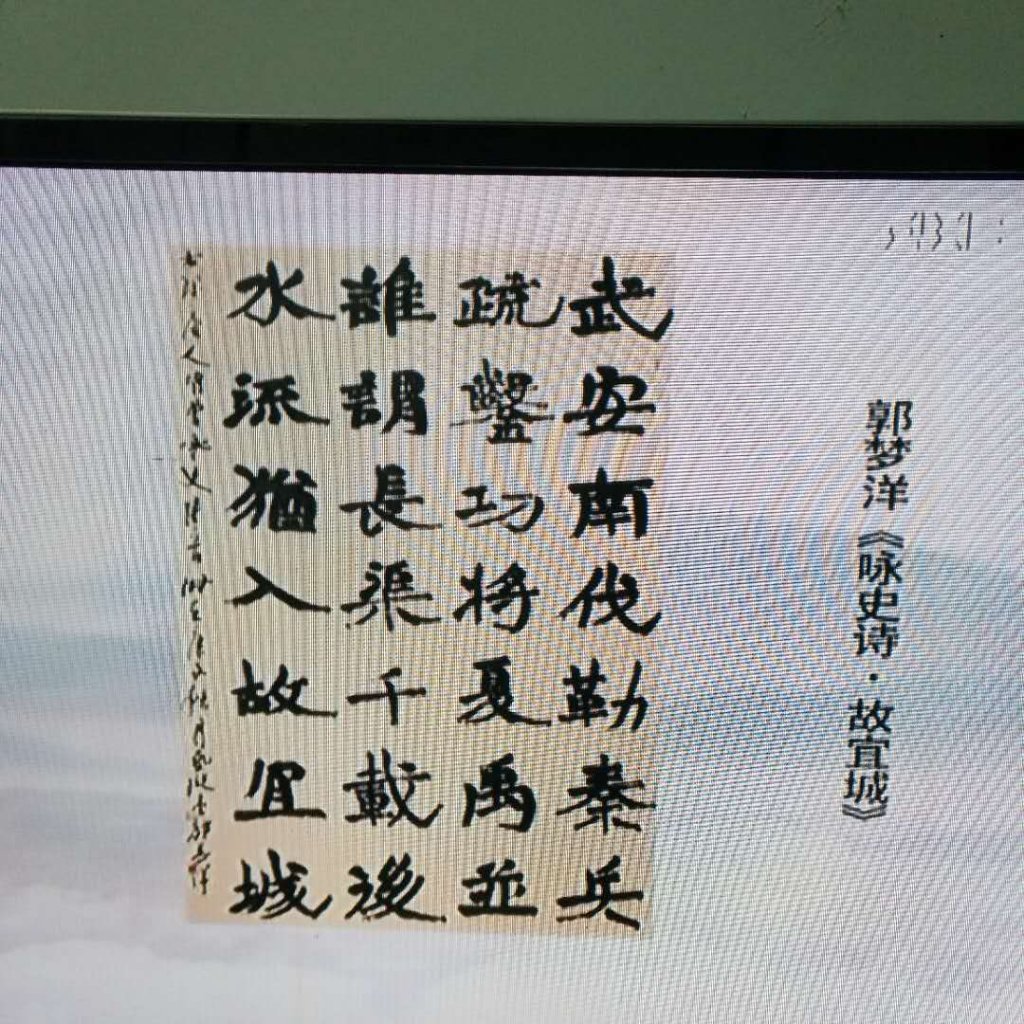 郭梦洋《咏史诗·故宜城》
武安南伐勒秦兵
疏鑿功将夏禹並
誰謂長渠千載後
水流猶入故宜城